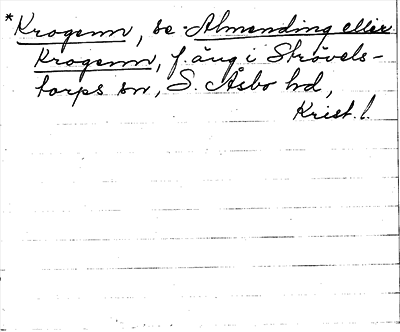 *Krogenn, se Almending eller
Krogenn, f. äng i Strövels-
torps sn, S. Åsbo hd,
Krist. l.